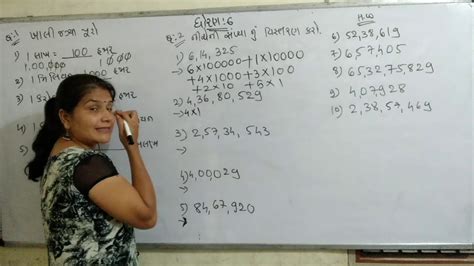 ધોરણ:6
પ્ર:1 ખાલી જગ્યા પૂરો
1) 1 લાખ = 100 હજાર
1,00,000
2) 1 મિલિયન 1000 હજાર
3)
4)
5)
પ્ર:2 નીચેની સંખ્યા નું વિસ્તરણ કરો.
1) 6,14,325
→ 6×100000 + 1×10000
+ 4×1000 + 3×100
+ 2×10 + 5×1
2) 4,36,80,529
→ 4×1
3) 2,57,34,543
→
4) 4,00,029
→
5) 84,67,920
→
H.W
6) 52,38,619
7) 6,57,405
8) 65,32,75,829
9) 4,07,928
10) 2,38,57,469